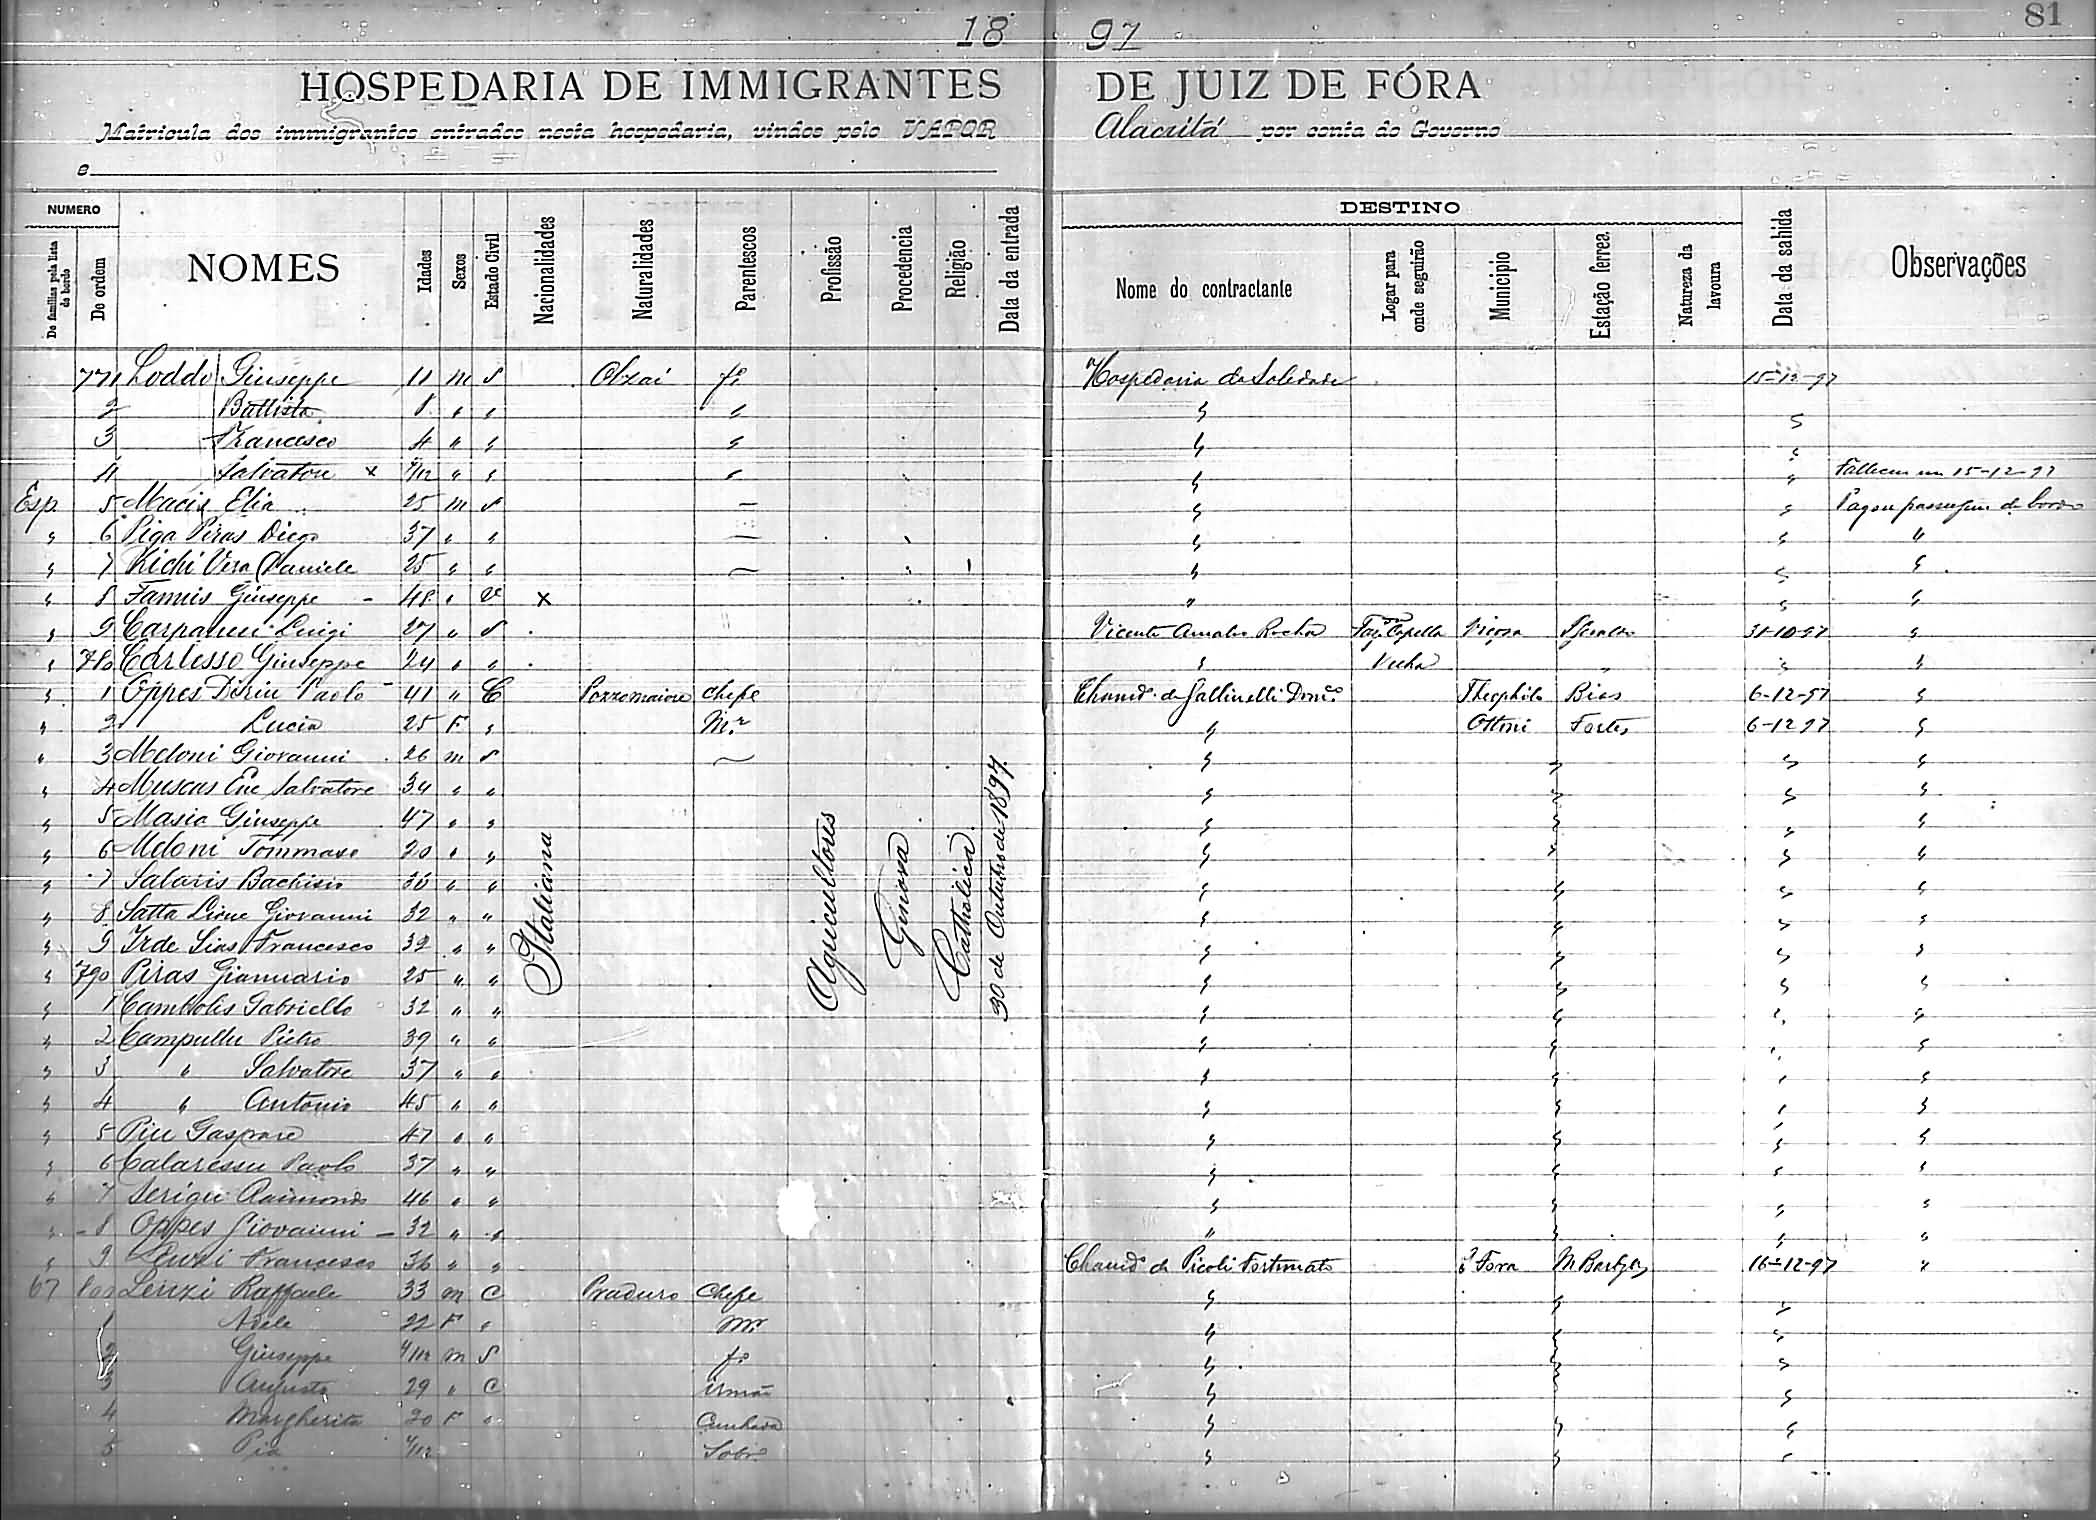 81
18 97
HOSPEDARIA DE IMMIGRANTES DE JUIZ DE FÓRA
Matricula dos immigrantes entrados nesta hospedaria, vindos pelo VAPOR Alacritá por conta do Governo
e
NUMERO DESTINO
De familias pela lista de bordo De ordem NOMES Idades Sexos Estado Civil Nacionalidades Naturalidades Parentescos Profissão Procedencia Religião Data da entrada Nome do contractante Logar para onde seguirão Municipio Estação ferrea. Natureza da lavoura Data da sahida Observações
771 Loddo Giuseppe 11 m S Olzai fo Hospedaria da Soledade 15-12-97
2 Battista 8 " " " " "
3 Francesco 4 " " " " "
4 Salvatore x /12 " " " " " Falleceu em 15-12-97
Esp. 5 Macis Elia 25 m S — " " Pagou passagem de bordo
" 6 Piga Piras Diego 37 " " — " " "
" 7 Vera Daniele 25 " " — " " "
" 8 Giuseppe - 48 " V x " " "
" 9 Luigi 27 " S Vicente Rocha Faz. Capella Viçosa S Geraldo 31-10-97 "
" 780 Carlesso Giuseppe 24 " " " Velha " " "
" 1 Oppes Paolo - 41 " C Pozzomaiore Chefe Chamdo de Gallinelli Domco Theophilo Bias 6-12-97 "
" 2 Lucia 25 F " Mr " Ottoni Fortes 6-12-97 "
" 3 Meloni Giovanni 26 m S — " " " "
" 4 Muscas Salvatore 34 " " " " " "
" 5 Masia Giuseppe 47 " " " " " "
" 6 Meloni Tommaso 20 " " " " " "
" 7 Salaris Bachisio 36 " " " " " "
" 8 Satta Giovanni 32 " " " " " "
" 9 Francesco 32 " " " " " "
" 790 Piras Giannario 25 " " " " " "
" 1 Gabriello 32 " " " " " "
" 2 Campullu Pietro 39 " " " " " "
" 3 " Salvatore 37 " " " " " "
" 4 " Antonio 45 " " " " " "
" 5 Piu Gaspare 47 " " " " " "
" 6 Calaresu Paolo 37 " " " " " "
" 7 Raimondo 46 " " " " " "
" - 8 Oppes Giovanni - 32 " " " " " "
" 9 Francesco 36 " " Chamdo de Picoli Fortunato J Fora 16-12-97 "
67 800 Lenzi Raffaele 33 m C Praduro Chefe " " "
1 Adele 22 F " Mr " " "
2 Giuseppe /12 m S fo " " "
3 Augusto 29 " C irmão " " "
4 Margherita 20 F " Cunhada " " "
5 Pia /12 Sobr " " "
Italiana
Agricultores
Genova
Catholica
30 de Outubro de 1897.